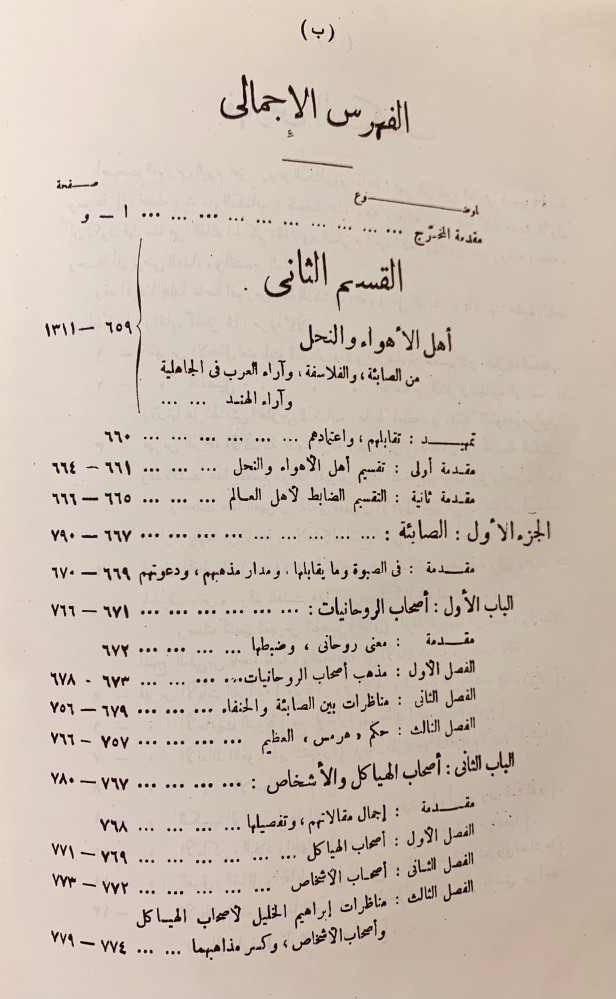 (ب)
الفهرس الإجمالى
الموضـــوع صـــفحة
مقدمة المخـرّج ... ... ... ... ... ... ... ... ... ا — و
القسم الثانى
أهل الأهواء والنحل
٦٥٩ — ١٣١١
من الصابئة، والفلاسفة، وآراء العرب فى الجاهلية
وآراء الهنـد ... ...
تمهيـــد : تقابلهم، واعتمادهم ... ... ... ... ... ... ٦٦٠
مقدمة أولى : تقسيم أهل الأهواء والنحل ... ... ... ٦٦١ – ٦٦٤
مقدمة ثانية : التقسيم الضابط لأهل العـالم ... ... ... ٦٦٥ – ٦٦٦
الجزء الأول : الصابئة : ... ... ... ... ... ... ... ... ٦٦٧ – ٧٩٠
مقـــدمة : فى الصبوة وما يقابلها، ومدار مذهبهم، ودعوتهم ٦٦٩ – ٦٧٠
الباب الأول : أصحاب الروحانيات : ... ... ... ... ... ٦٧١ – ٧٦٦
مقـــدمة : معنى روحانى، وضبطها ... ... ... ... ٦٧٢
الفصل الأول : مذهب أصحاب الروحانيات ... ... ... ... ٦٧٣ - ٦٧٨
الفصل الثانى : مناظرات بين الصابئة والحنفاء ... ... ... ٦٧٩ – ٧٥٦
الفصل الثالث : حكم « هرمس » العظيم ... ... ... ... ٧٥٧ – ٧٦٦
الباب الثانى : أصحاب الهياكل والأشخاص : ... ... ... ... ٧٦٧ – ٧٨٠
مقـــدمة : إجمال مقالاتهم، وتفصيلها ... ... ... ... ٧٦٨
الفصل الأول : أصحاب الهياكل ... ... ... ... ... ... ٧٦٩ – ٧٧١
الفصل الثـانى : أصحـاب الأشخاص ... ... ... ... ... ٧٧٢ – ٧٧٣
الفصل الثالث : مناظرات إبراهيم الخليل لأصحاب الهيـاكل
وأصحاب الأشخاص، وكسر مذاهبهما ... ... ٧٧٤ – ٧٧٩